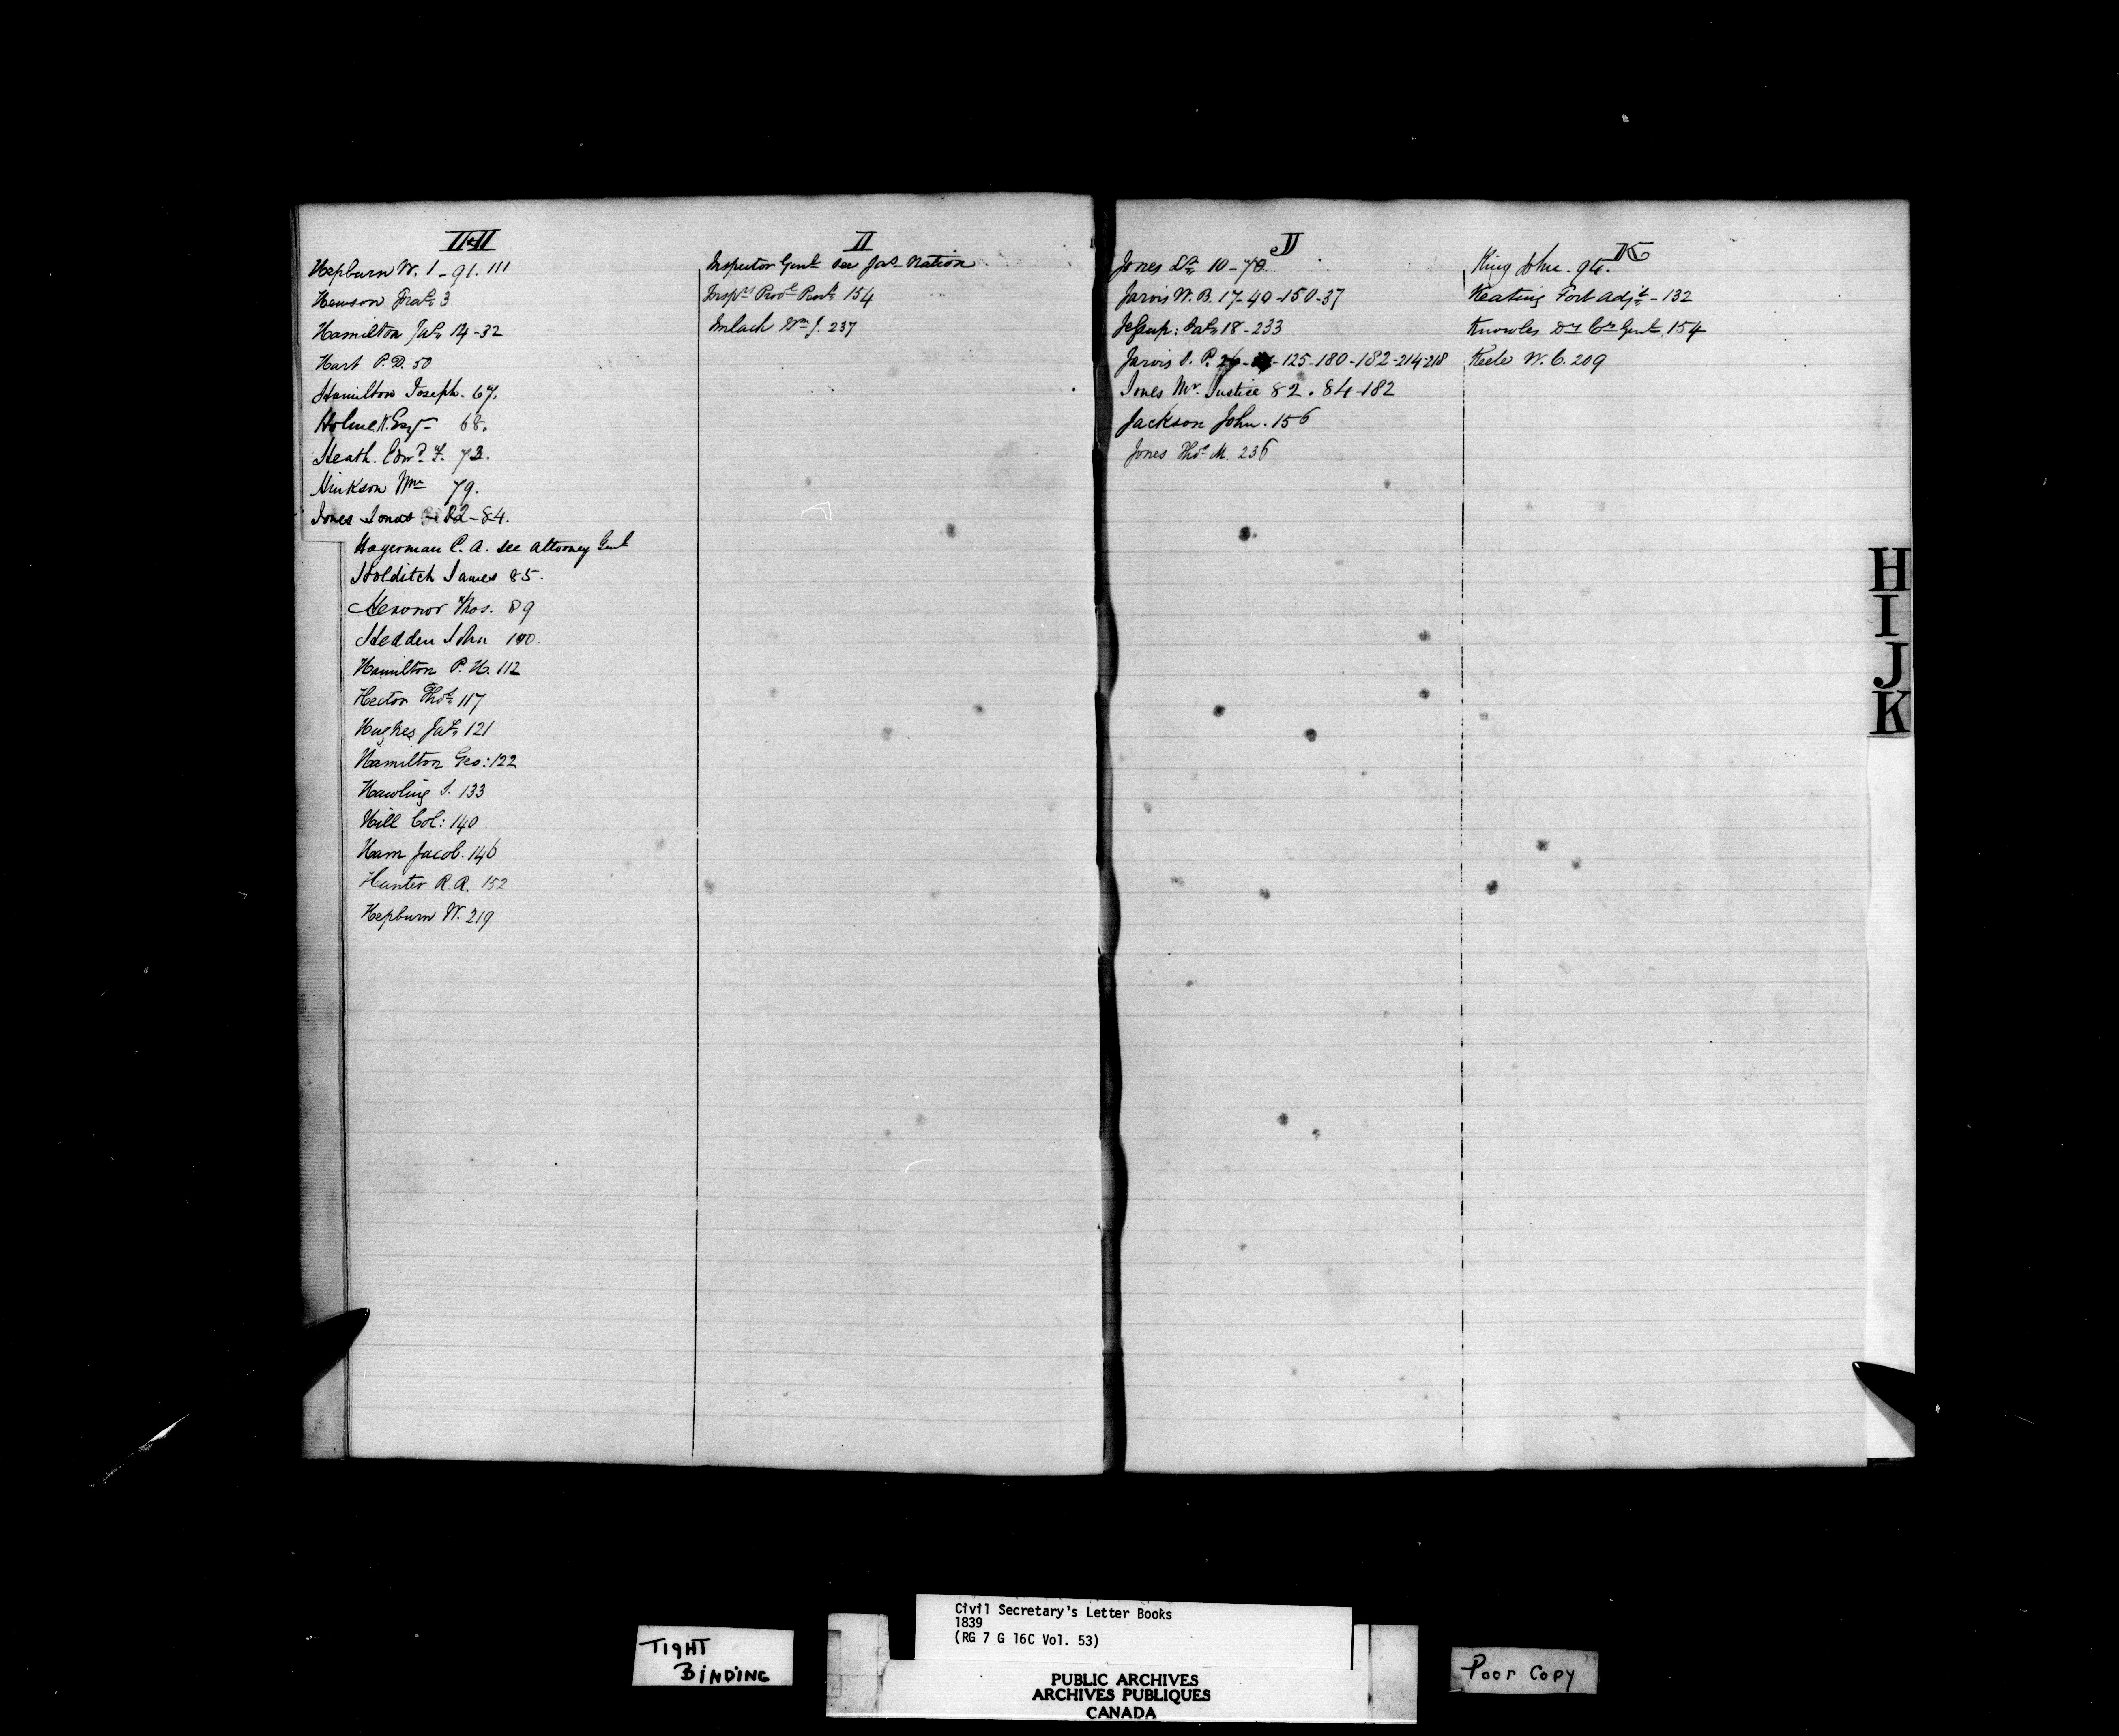 H
Hepburn W. 1-91.111
Hewson Fras. 3
Hamilton Jas. 14-32
Hart P. D. 50
Hamilton Joseph. 67.
Holme Esqr 68.
Heath. Edwd F. 73.
Hinkson Wm 79.
Jones Jonas - 82-84.
Hagerman C. A. see Attorney Genl
Holditch James 85.
Thos. 89
Hedden John 100.
Hamilton P. H. 112
Hector Thos. 117
Hughes Jas. 121
Hamilton Geo: 122
Hawling S. 133
Hill Col: 140
Ham Jacob. 146
Hunter R. A. 152
Hepburn W. 219
I
Inspector Genl see Jas Nation
Insprs Provl Peny 154
Imlach Wm J. 237
J
Jones Lt. 10-70.
Jarvis W. B. 17-40-150-37
Jessup: Jas. 18-233
Jarvis S. P. 26- -125-180-182-214-218
Jones Mr. Justice 82. 84-182
Jackson John. 156
Jones Thos M. 236
K
King John. 94.
Keating Fort Adjt. - 132
Knowles Dy Cy Genl. 154
Keele W. C. 209
H
I
J
K
TIGHT
BINDING
Civil Secretary's Letter Books
1839
(RG 7 G 16C Vol. 53)
PUBLIC ARCHIVES
ARCHIVES PUBLIQUES
CANADA
Poor Copy